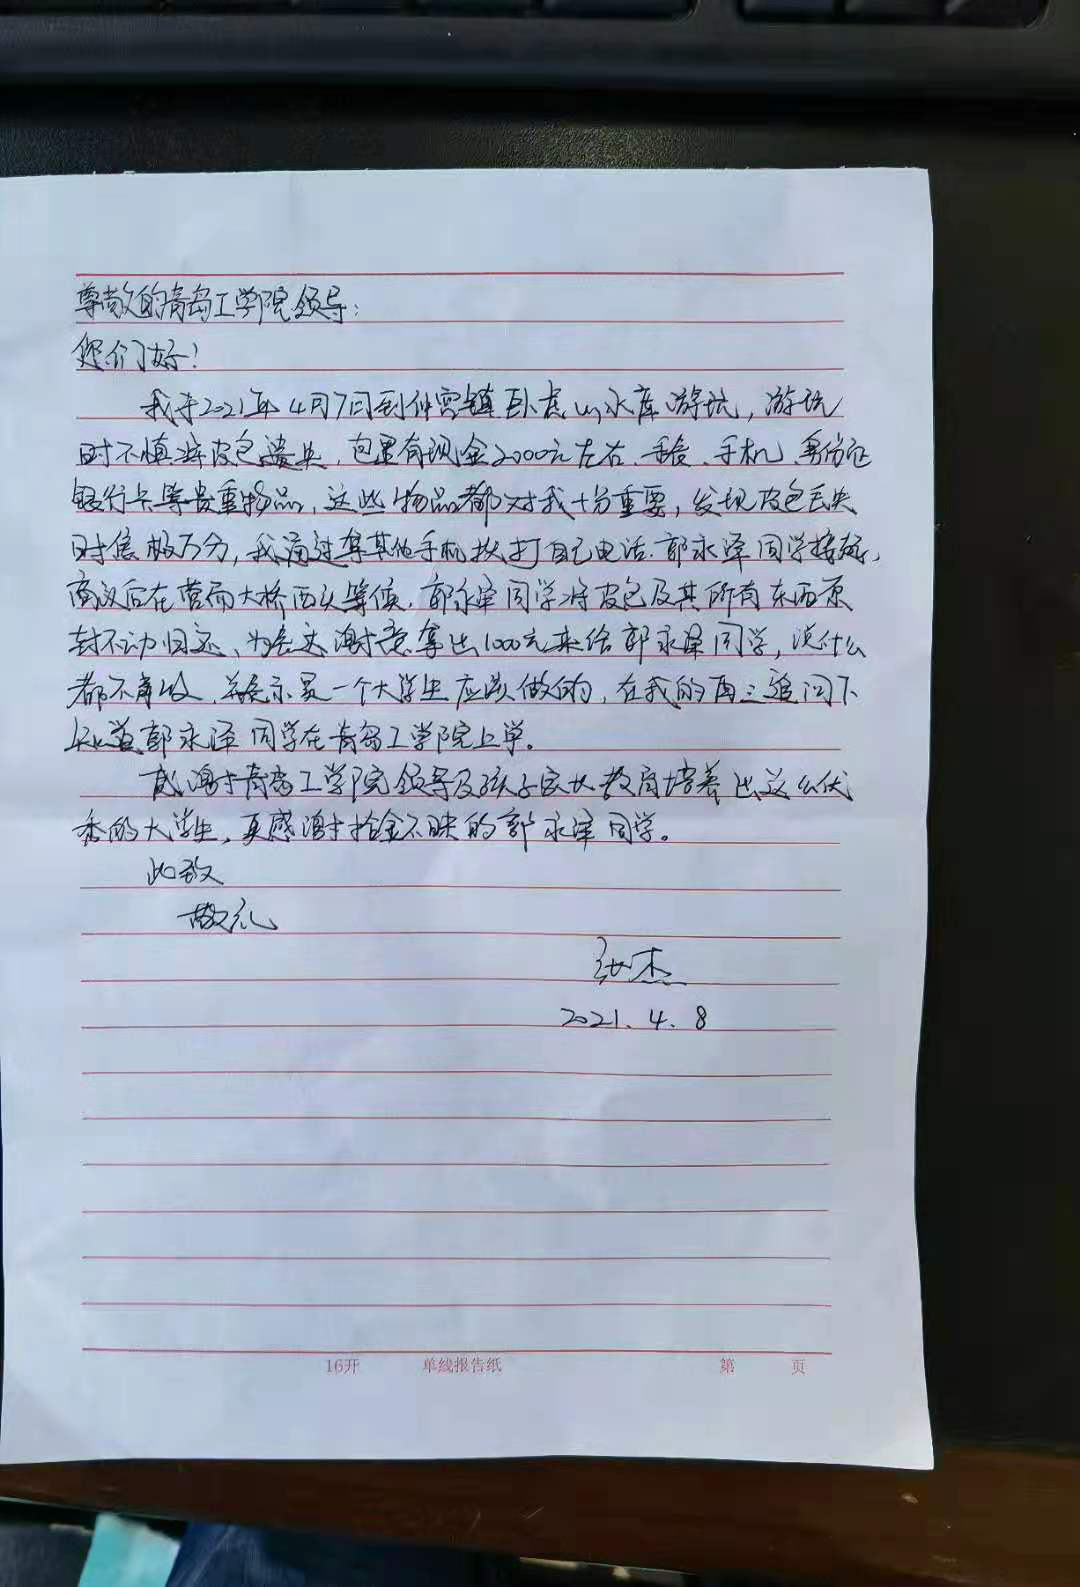 尊敬的青岛工学院领导：
您们好！
我于2021年4月7日到仲宫镇卧虎山水库游玩，游玩
时不慎将皮包遗失，包里有现金2000元左右、手机、身份证
银行卡等贵重物品，这些物品都对我十分重要，发现皮包丢失
时焦极万分，我通过拿其他手机拨打自己电话.郭永泽同学接通，
商议后在营而大桥西头等候.郭永泽同学将皮包及其所有东西原
封不动归还、为表达谢意拿出1000元来给郭永泽同学，说什么
都不肯收，并表示是一个大学生应该做的，在我的再三追问下
知道郭永泽同学在青岛工学院上学。
感谢青岛工学院领导及孩子家长教育培养出这么优
秀的大学生，更感谢拾金不昧的郭永泽同学。
此致
敬礼
张杰
2021.4.8
16开 单线报告纸 第 页